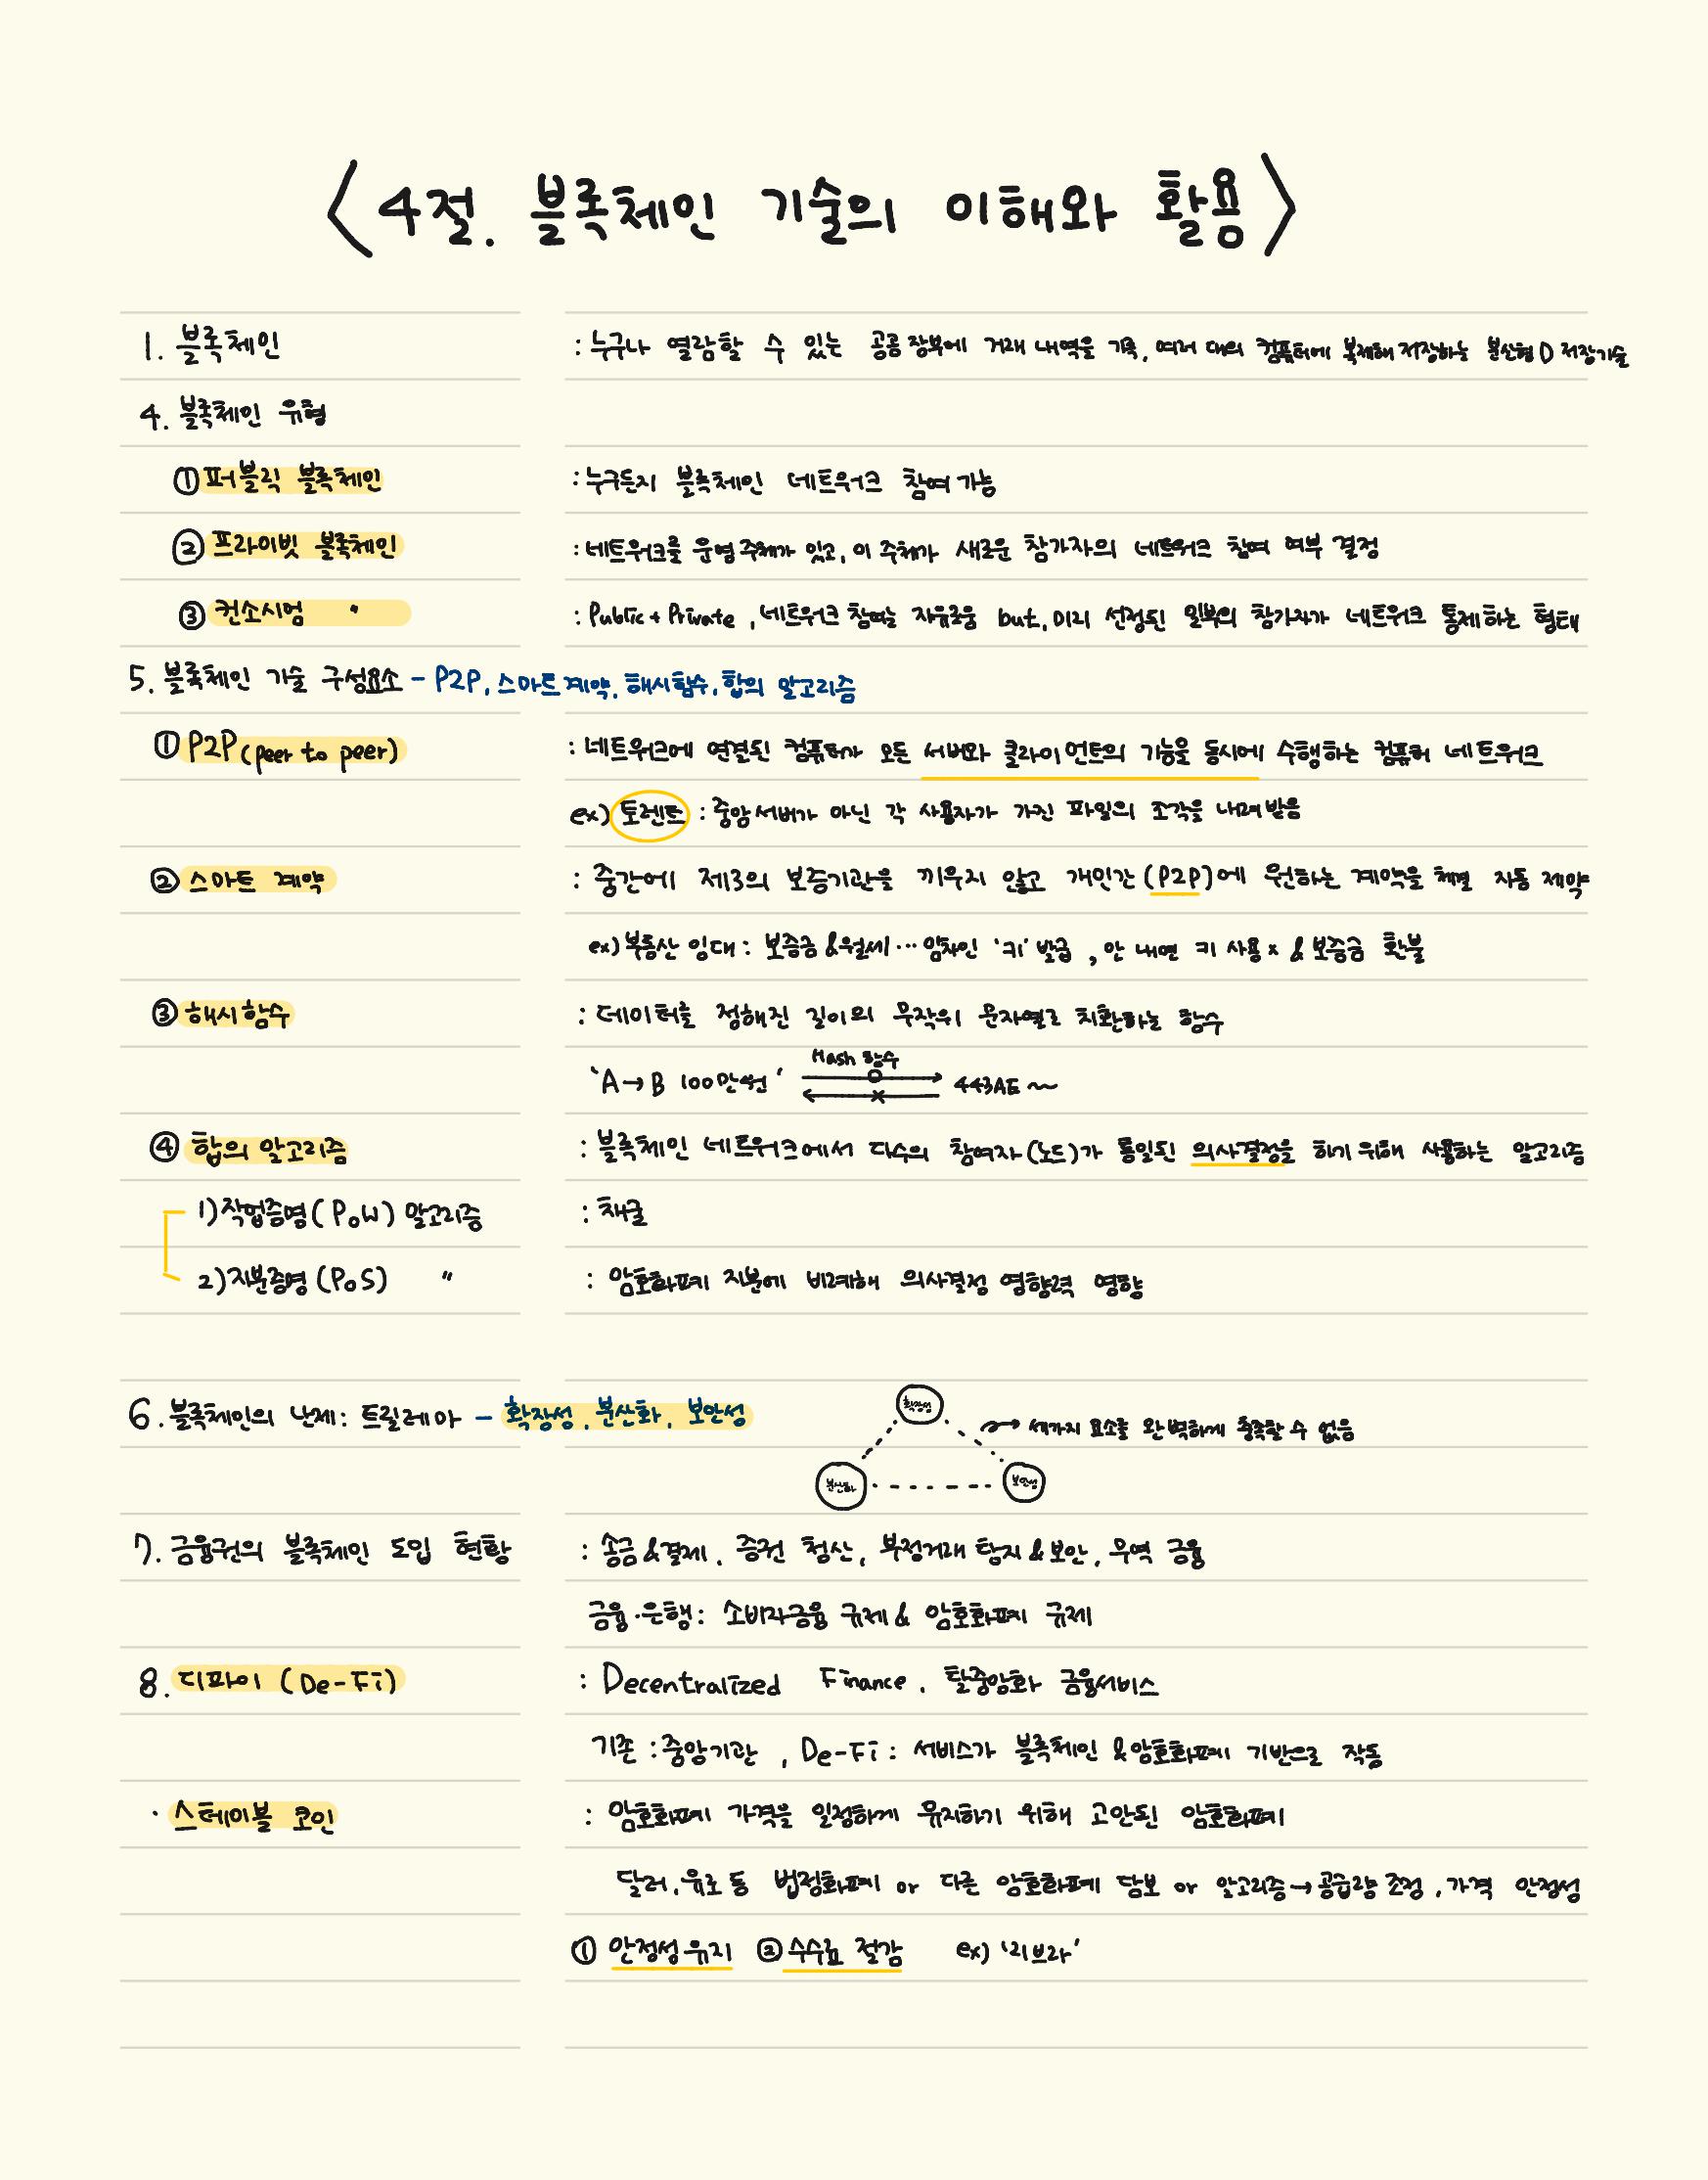 <4절. 블록체인 기술의 이해와 활용>
1. 블록체인 : 누구나 열람할 수 있는 공공장부에 거래 내역을 기록, 여러 대의 컴퓨터에 복제해 저장하는 분산형 D 저장기술
4. 블록체인 유형
① 퍼블릭 블록체인 : 누구든지 블록체인 네트워크 참여 가능
② 프라이빗 블록체인 : 네트워크를 운영주체가 있고, 이 주체가 새로운 참가자의 네트워크 참여 여부 결정
③ 컨소시엄 " : Public + Private, 네트워크 참여는 자유로움 but, 미리 선정된 일부의 참가자가 네트워크 통제하는 형태
5. 블록체인 기술 구성요소 - P2P, 스마트 계약, 해시함수, 합의 알고리즘
① P2P (peer to peer) : 네트워크에 연결된 컴퓨터가 모든 서버와 클라이언트의 기능을 동시에 수행하는 컴퓨터 네트워크
ex) 토렌트 : 중앙서버가 아닌 각 사용자가 가진 파일의 조각을 내려받음
② 스마트 계약 : 중간에 제3의 보증기관을 끼우지 않고 개인간 (P2P)에 원하는 계약을 체결 자동 계약
ex) 부동산 임대 : 보증금 & 월세 … 임차인 '키' 발급, 안 내면 키 사용 x & 보증금 환불
③ 해시함수 : 데이터를 정해진 길이의 무작위 문자열로 치환하는 함수
Hash 함수
'A → B 100만원' 443AE ~
④ 합의 알고리즘 : 블록체인 네트워크에서 다수의 참여자(노드)가 통일된 의사결정을 하기 위해 사용하는 알고리즘
1) 작업증명 (PoW) 알고리즘 : 채굴
2) 지분증명 (PoS) " : 암호화폐 지분에 비례해 의사결정 영향력 영향
6. 블록체인의 난제 : 트릴레마 - 확장성, 분산화, 보안성
확장성 → 세가지 요소를 완벽하게 충족할 수 없음
분산화 보안성
7. 금융권의 블록체인 도입 현황 : 송금 & 결제, 증권 청산, 부정거래 탐지 & 보안, 무역 금융
금융·은행 : 소비자금융 규제 & 암호화폐 규제
8. 디파이 (De-Fi) : Decentralized Finance, 탈중앙화 금융서비스
기존 : 중앙기관, De-Fi : 서비스가 블록체인 & 암호화폐 기반으로 작동
· 스테이블 코인 : 암호화폐 가격을 일정하게 유지하기 위해 고안된 암호화폐
달러, 유로 등 법정화폐 or 다른 암호화폐 담보 or 알고리즘 → 공급량 조정, 가격 안정성
① 안정성 유지 ② 수수료 절감 ex) '리브라'